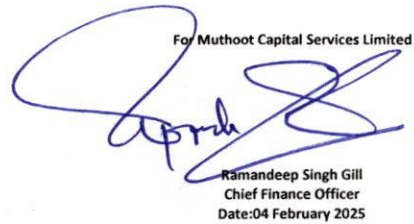 For Muthoot Capital Services Limited
Ramandeep Singh Gill
Chief Finance Officer
Date:04 February 2025